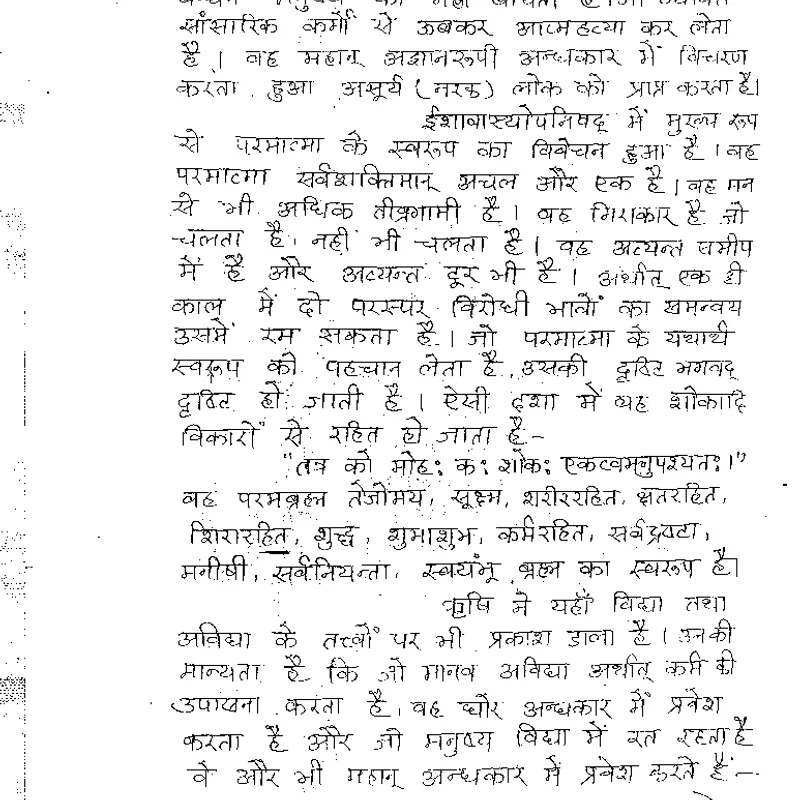 सांसारिक कर्मों से ऊबकर आत्महत्या कर लेता
है । वह महान् अज्ञानरूपी अन्धकार में विचरण
करता हुआ असूर्य (नरक) लोक को प्राप्त करता है।
ईशावास्योपनिषद् में मुख्य रूप
से परमात्मा के स्वरूप का विवेचन हुआ है । वह
परमात्मा सर्वशक्तिमान् अचल और एक है। वह मन
से भी अधिक तीव्रगामी है । वह निराकार है जो
चलता है, नहीं भी चलता है । वह अत्यन्त समीप
में है और अत्यन्त दूर भी है । अर्थात् एक ही
काल में दो परस्पर विरोधी भावों का समन्वय
उसमें रम सकता है । जो परमात्मा के यथार्थ
स्वरूप को पहचान लेता है, उसकी दृष्टि भगवद्
दृष्टि हो जाती है । ऐसी दशा में वह शोकादि
विकारों से रहित हो जाता है -
"तत्र को मोहः कः शोकः एकत्वमनुपश्यतः।"
वह परमब्रह्म तेजोमय, सूक्ष्म, शरीररहित, क्षतरहित,
शिरारहित, शुद्ध, शुभाशुभ, कर्मरहित, सर्वद्रष्टा,
मनीषी, सर्वनियन्ता, स्वयंभू ब्रह्म का स्वरूप है।
ऋषि ने यहाँ विद्या तथा
अविद्या के तत्त्वों पर भी प्रकाश डाला है । उनकी
मान्यता है कि जो मानव अविद्या अर्थात् कर्म की
उपासना करता है, वह घोर अन्धकार में प्रवेश
करता है और जो मनुष्य विद्या में रत रहता है
वे और भी महान् अन्धकार में प्रवेश करते हैं -